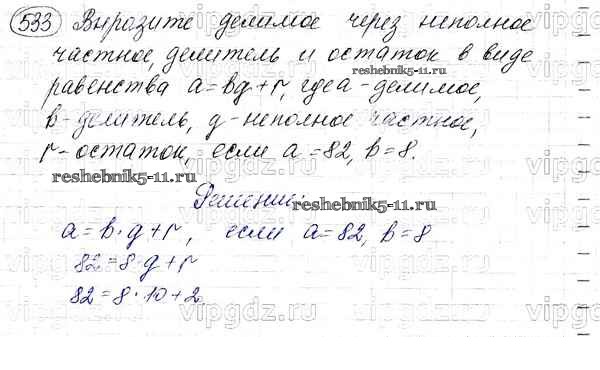 533 Выразите делимое через неполное
частное, делитель и остаток в виде
reshebnik5-11.ru.
равенства a=bq+r, где a-делимое,
b-делитель, q-неполное частное,
r-остаток, если a=82, b=8.
reshebnik5-11.ru.
Решение:
reshebnik5-11.ru.
a=b·q+r, если a=82, b=8
82=8·q+r
82=8·10+2
vipgdz.ru vipgdz.ru vipgdz.ru